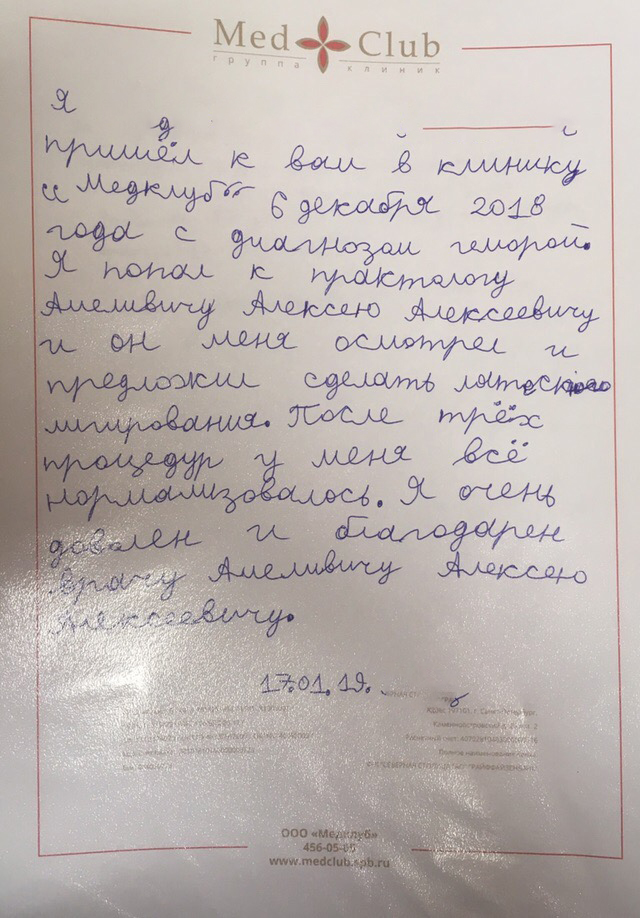 Med Club
группа клиник
Я
пришёл к вам в клинику
"Медклуб" 6 декабря 2018
года с диагнозом геморой.
Я попал к практологу
Амеливичу Алексею Алексеевичу
и он меня осмотрел и
предложил сделать
лигирования. После трёх
процедур у меня всё
нормализовалось. Я очень
доволен и благодарен
врачу Амеливичу Алексею
Алексеевичу.
17.01.19.
ООО «Медклуб»
456-05-
www.medclub.spb.ru